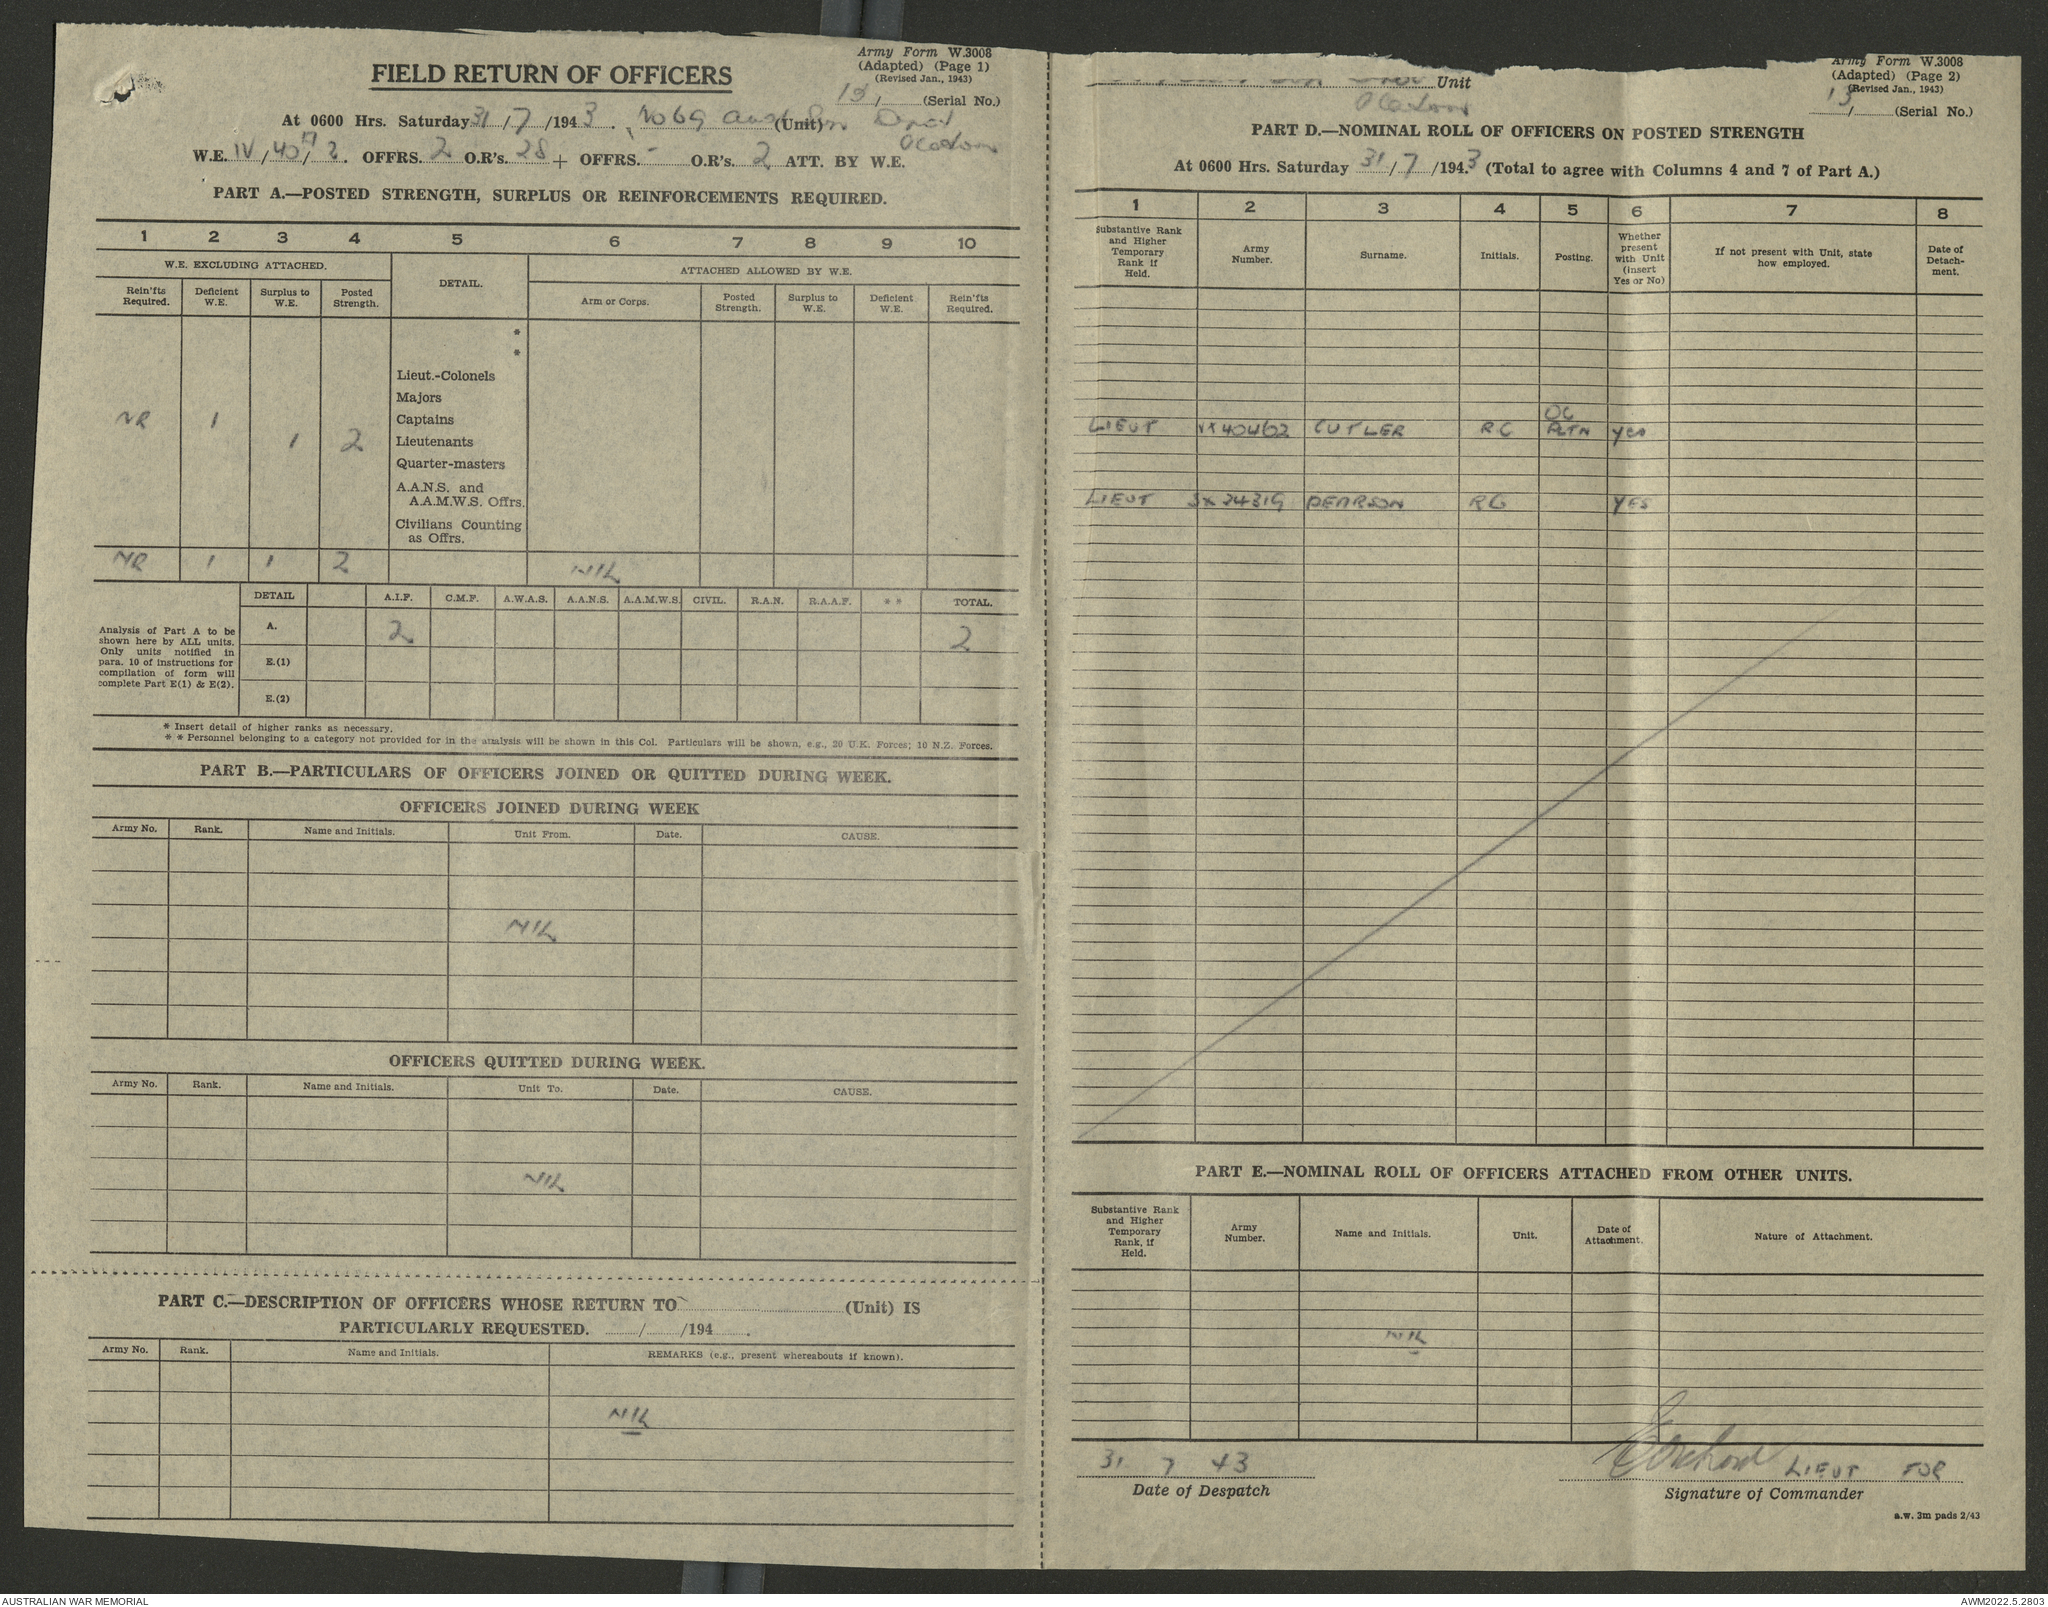 Army Form W.3008
(Adapted) (Page 1)
(Revised Jan., 1943)
FIELD RETURN OF OFFICERS
13/ (Serial No.)
At 0600 Hrs. Saturday 31/7/1943. No 69 Aust (Unit)
W.E. IV/40/2. OFFRS. 2 O.R's. 28 + OFFRS. - O.R's. 2 ATT. BY W.E.
PART A.—POSTED STRENGTH, SURPLUS OR REINFORCEMENTS REQUIRED.
1 2 3 4 5 6 7 8 9 10
W.E. EXCLUDING ATTACHED. DETAIL. ATTACHED ALLOWED BY W.E.
Rein'fts Required. Deficient W.E. Surplus to W.E. Posted Strength. Arm or Corps. Posted Strength. Surplus to W.E. Deficient W.E. Rein'fts Required.
*
*
Lieut.-Colonels
Majors
NR 1 Captains
1 2 Lieutenants
Quarter-masters
A.A.N.S. and
A.A.M.W.S. Offrs.
Civilians Counting
as Offrs.
NR 1 1 2 NIL
DETAIL A.I.F. C.M.F. A.W.A.S. A.A.N.S. A.A.M.W.S. CIVIL. R.A.N. R.A.A.F. * * TOTAL.
Analysis of Part A to be
shown here by ALL units.
Only units notified in
para. 10 of instructions for
compilation of form will
complete Part E(1) & E(2).
A. 2 2
E.(1)
E.(2)
* Insert detail of higher ranks as necessary.
* * Personnel belonging to a category not provided for in the analysis will be shown in this Col. Particulars will be shown, e.g., 20 U.K. Forces; 10 N.Z. Forces.
PART B.—PARTICULARS OF OFFICERS JOINED OR QUITTED DURING WEEK.
OFFICERS JOINED DURING WEEK
Army No. Rank. Name and Initials. Unit From. Date. CAUSE.
NIL
OFFICERS QUITTED DURING WEEK.
Army No. Rank. Name and Initials. Unit To. Date. CAUSE.
NIL
PART C.—DESCRIPTION OF OFFICERS WHOSE RETURN TO (Unit) IS
PARTICULARLY REQUESTED. / /194 .
Army No. Rank. Name and Initials. REMARKS (e.g., present whereabouts if known).
NIL
Army Form W.3008
(Adapted) (Page 2)
(Revised Jan., 1943)
Unit
13/ (Serial No.)
PART D.—NOMINAL ROLL OF OFFICERS ON POSTED STRENGTH
At 0600 Hrs. Saturday 31/7/1943 (Total to agree with Columns 4 and 7 of Part A.)
1 2 3 4 5 6 7 8
Substantive Rank and Higher Temporary Rank if Held. Army Number. Surname. Initials. Posting. Whether present with Unit (insert Yes or No) If not present with Unit, state how employed. Date of Detach-ment.
OC
LIEUT VX40462 CUTLER RC PLTN YES
LIEUT SX24319 PEARSON RG YES
PART E.—NOMINAL ROLL OF OFFICERS ATTACHED FROM OTHER UNITS.
Substantive Rank and Higher Temporary Rank, if Held. Army Number. Name and Initials. Unit. Date of Attachment. Nature of Attachment.
NIL
31 7 43 LIEUT FOR
Date of Despatch Signature of Commander
a.w. 3m pads 2/43
AUSTRALIAN WAR MEMORIAL AWM2022.5.2803